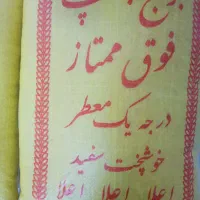 برنج
فوق ممتاز
درجه یک معطر
خوشپخت سفید
اعلا اعلا اعلا